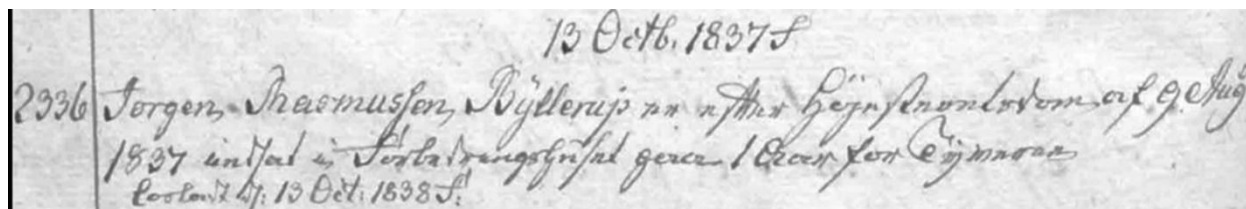 13 Octb. 1837 S
2336 Jørgen Rasmussen Byllerup er efter Høiesteretsdom af 9. Aug
1837 indsat i Forbedringshuset paa 1 Aar for Tyverie
Løsladt d: 13 Oct: 1838 S: